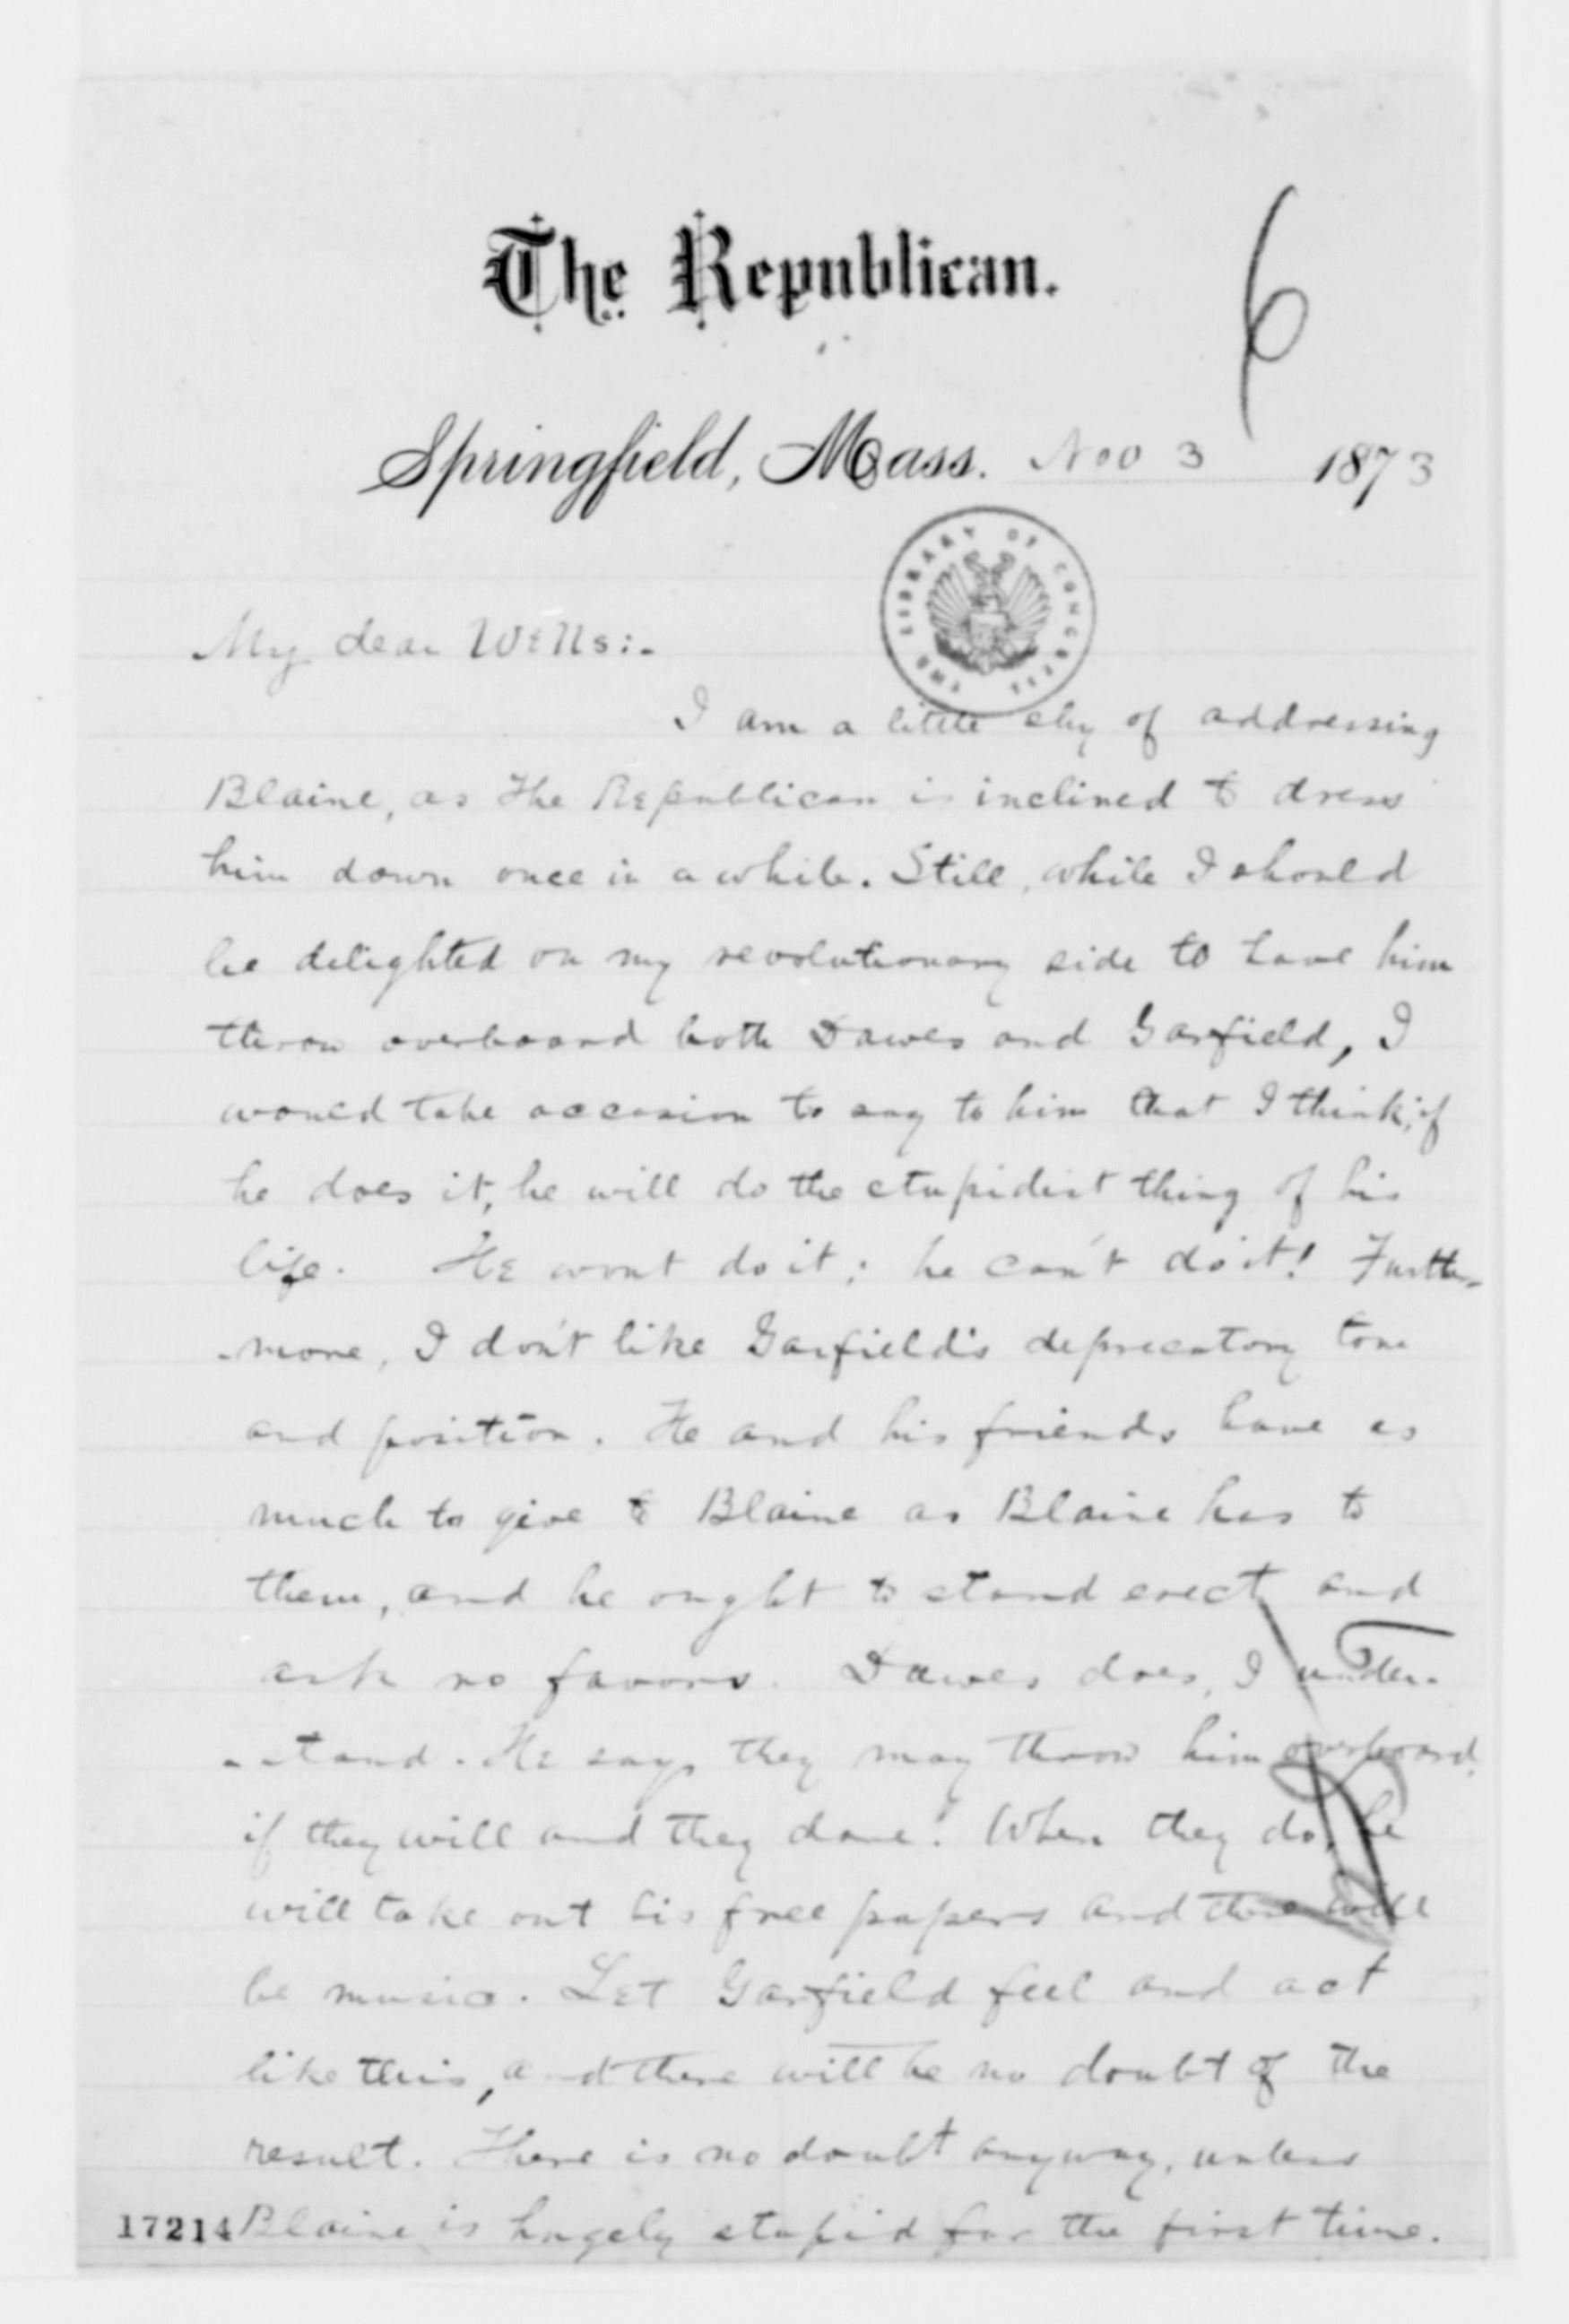 The Republican.
6
Springfield, Mass. Nov 3 1873
THE LIBRARY OF CONGRESS
My dear Wells:-
I am a little shy of addressing
Blaine, as The Republican is inclined to dress
him down once in a while. Still, while I should
be delighted on my revolutionary side to have him
throw overboard both Dawes and Garfield, I
would take occasion to say to him that I think, if
he does it, he will do the stupidest thing of his
life. He wont do it; he can't do it! Further-
-more, I don't like Garfield's deprecatory tone
and position. He and his friends have as
much to give to Blaine as Blaine has to
them, and he ought to stand erect and
ask no favors. Dawes does, I under-
-stand. He says they may throw him overboard,
if they will and they dare! When they do, he
will take out his free papers and there will
be music. Let Garfield feel and act
like this, and there will be no doubt of the
result. There is no doubt anyway, unless
17214 Blaine is hugely stupid for the first time.